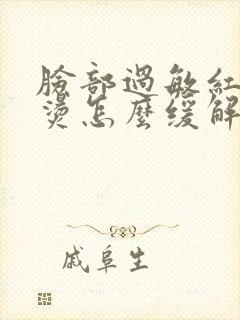 臉部過敏紅
燙怎麼緩解
戚阜生